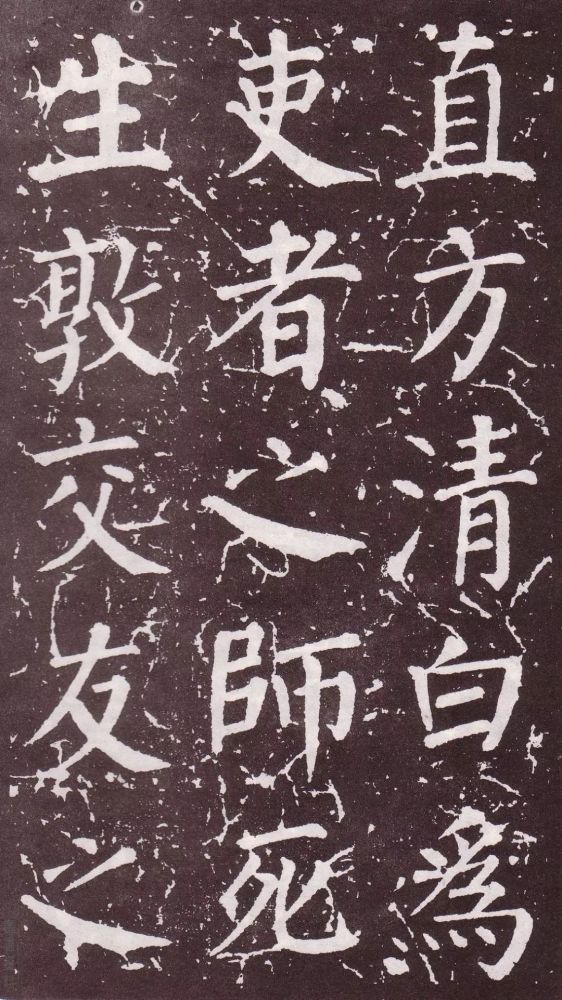 直方清白為
吏者之師死
生敦交友之